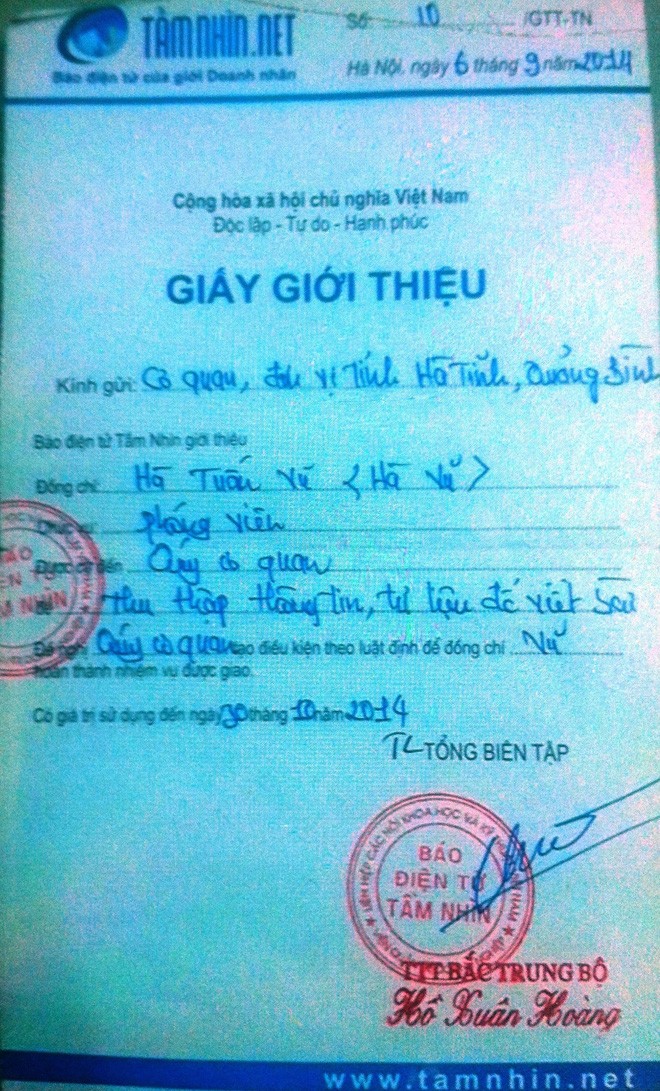 TẦMNHÌN.NET
Báo điện tử của giới Doanh nhân
Số: 10 /GTT-TN
Hà Nội, ngày 6 tháng 9 năm 2014
Cộng hòa xã hội chủ nghĩa Việt Nam
Độc lập - Tự do - Hạnh phúc
GIẤY GIỚI THIỆU
Kính gửi: Cơ quan, đơn vị tỉnh Hà Tĩnh, Quảng Bình
Báo điện tử Tầm Nhìn giới thiệu
Đồng chí: Hà Tuấn Vũ (Hà Vũ)
phóng viên
Được cử đến Qúy cơ quan
thu thập thông tin, tư liệu để viết bài
Đề nghị Qúy cơ quan tạo điều kiện theo luật định để đồng chí Vũ
hoàn thành nhiệm vụ được giao.
Có giá trị sử dụng đến ngày 30 tháng 10 năm 2014
TL TỔNG BIÊN TẬP
BÁO
ĐIỆN TỬ
TẦM NHÌN
TTT BẮC TRUNG BỘ
Hồ Xuân Hoàng
www.tamnhin.net